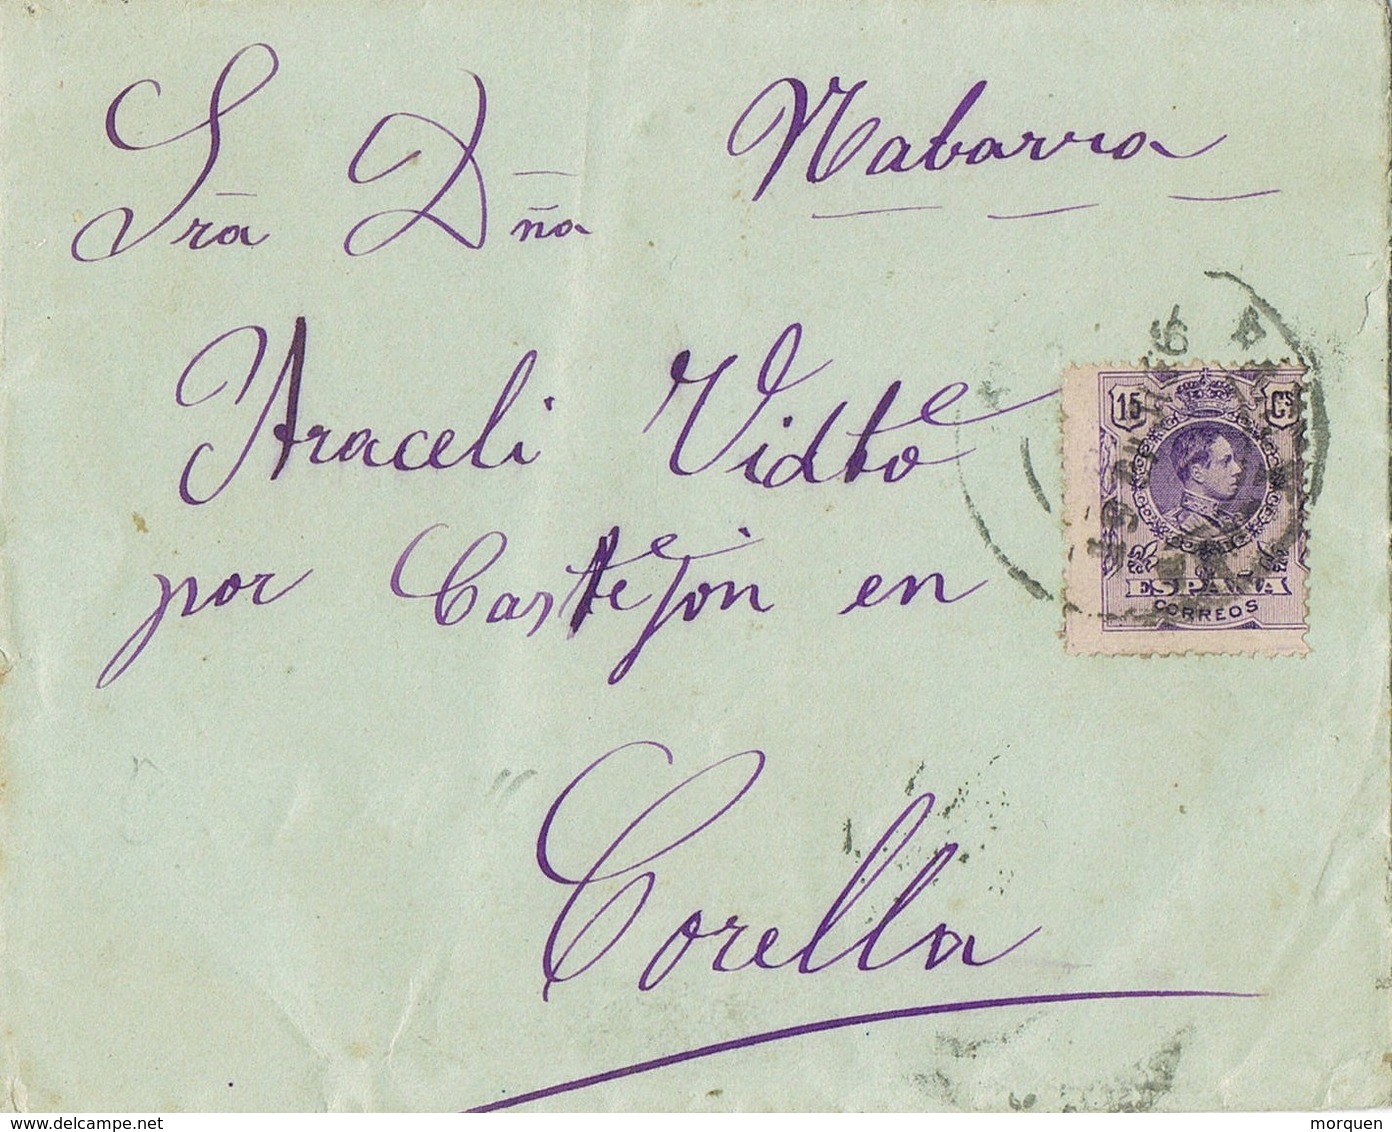 Sra Dña Nabarra
Araceli Vidto
por Castejón en
Corella
15 Cs
ESPAÑA
CORREOS
www.delcampe.net
morquen